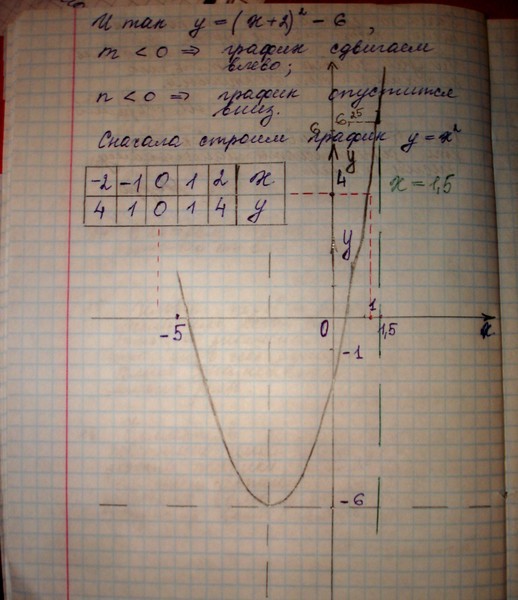 И так y = (x+2)² - 6,
m < 0 ⇒ график сдвигаем
влево;
n < 0 ⇒ график опустится
вниз.
Сначала строим график y = x²
-2 -1 0 1 2 x
4 1 0 1 4 y
6,25
6
y
4
x = 1,5
y
-5
0
1
1,5
x
-1
-6